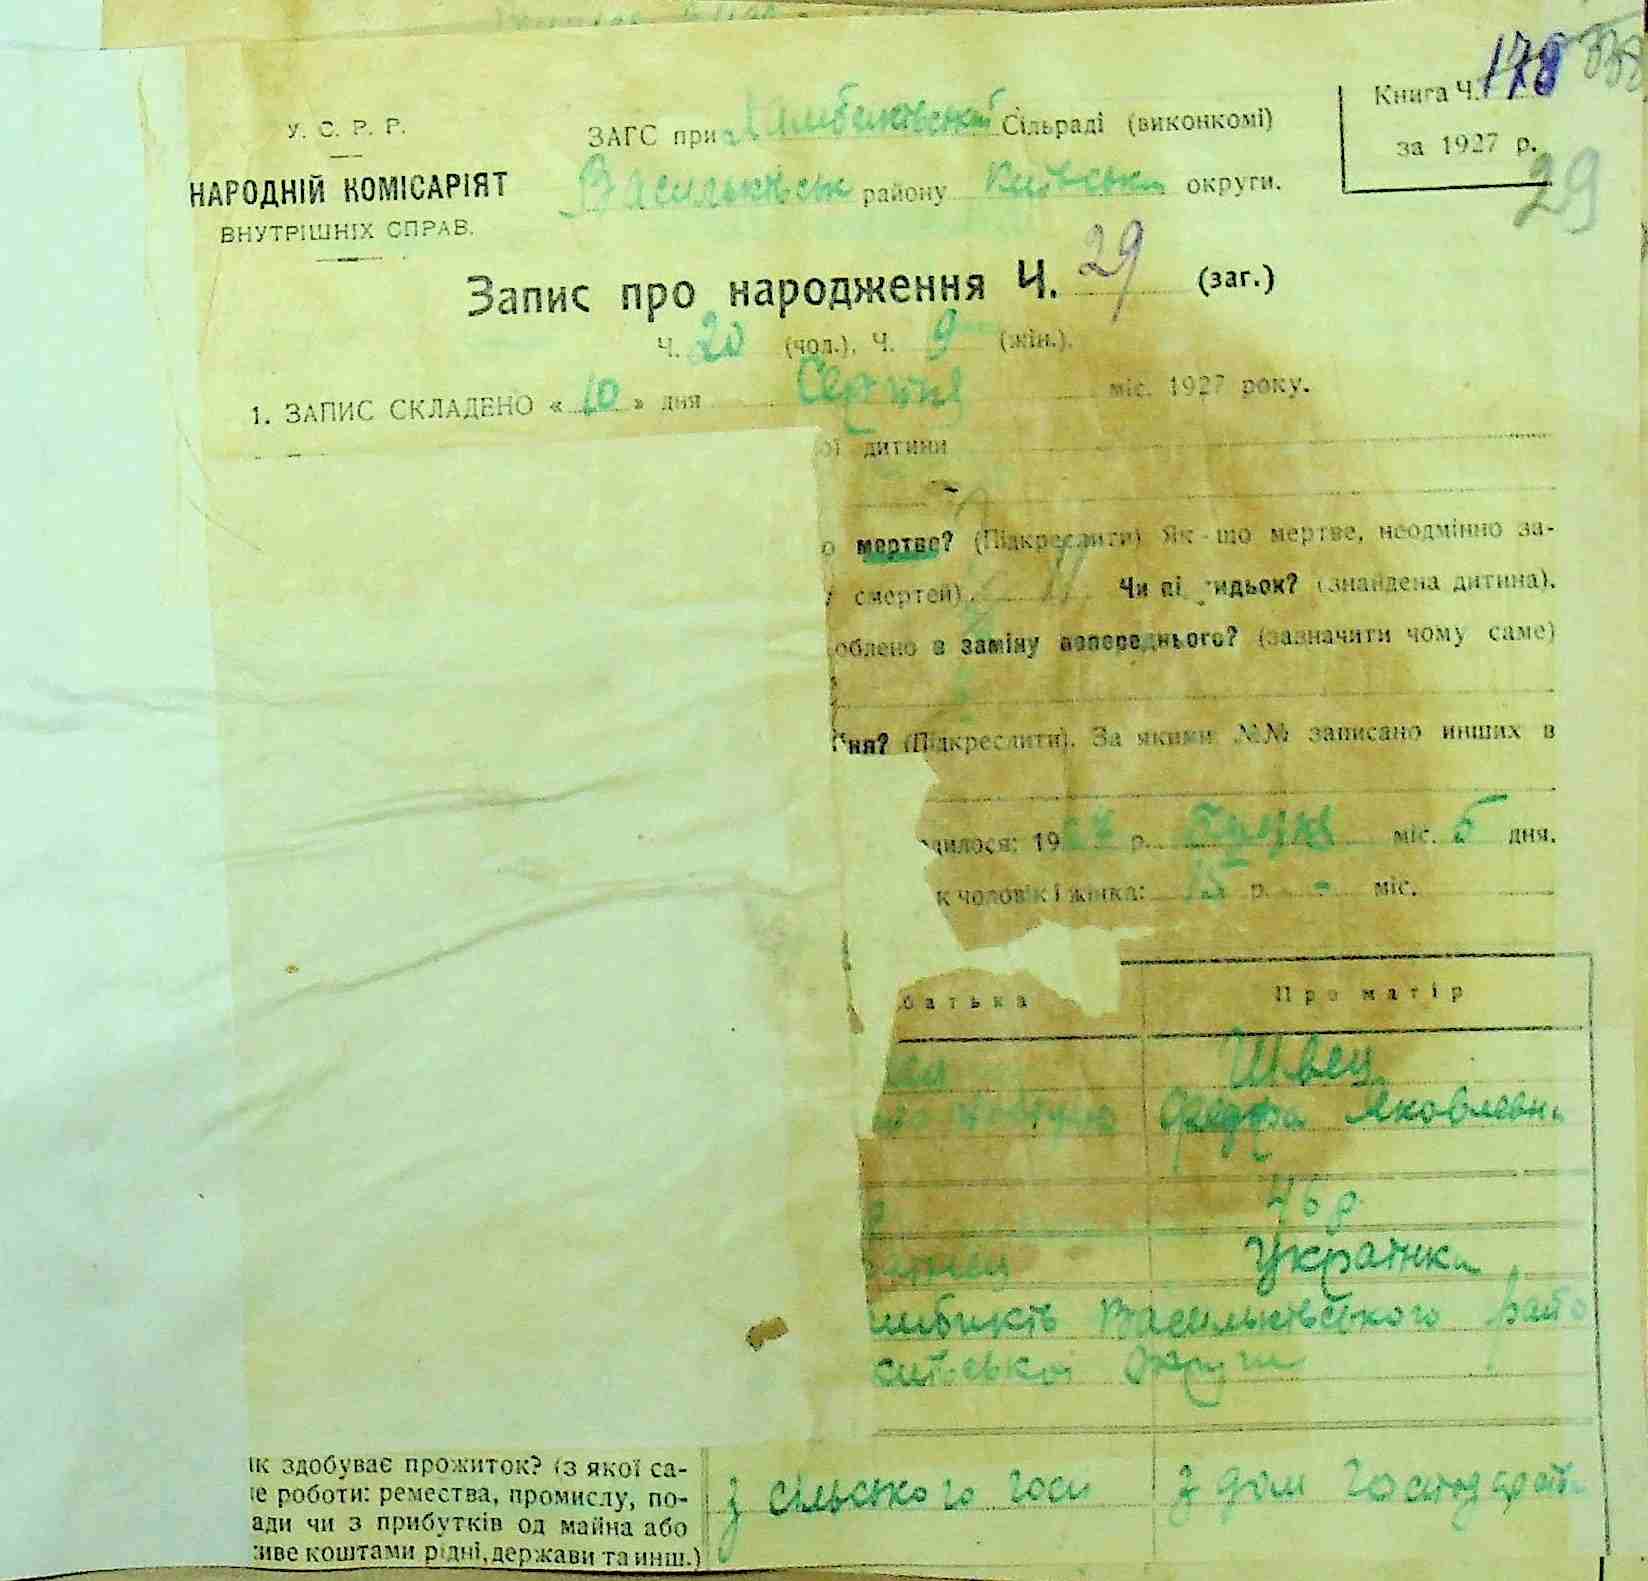 178
У. С. Р. Р.
НАРОДНІЙ КОМІСАРІЯТ
ВНУТРІШНІХ СПРАВ.
ЗАГС при Сільраді (виконкомі)
Васильківськ району Київськи округи.
Книга Ч.
за 1927 р.
29
Запис про народження Ч. 29 (заг.)
Ч. 20 (чол.), Ч. 9 (жін.).
1. ЗАПИС СКЛАДЕНО « 10 » дня Серпня міс. 1927 року.
ої дитини
о мертве? (Підкреслити) Як-що мертве, неодмінно за-
у смертей). Чи підкидьок? (знайдена дитина).
облено в заміну попереднього? (зазначити чому саме)
ня? (Підкреслити). За якими №№ записано инших в
дилося: 1927 р. міс. 5 дня.
к чоловік і жінка: 15 р. - міс.
батька Про матір
Швец
Яковлевн
46 р
Українка
Васильківського райо
київської округи
ік здобуває прожиток? (з якої са-
е роботи: ремества, промислу, по-
ади чи з прибутків од майна або
живе коштами рідні, держави та инш.)
З сільського госп З дом господарств